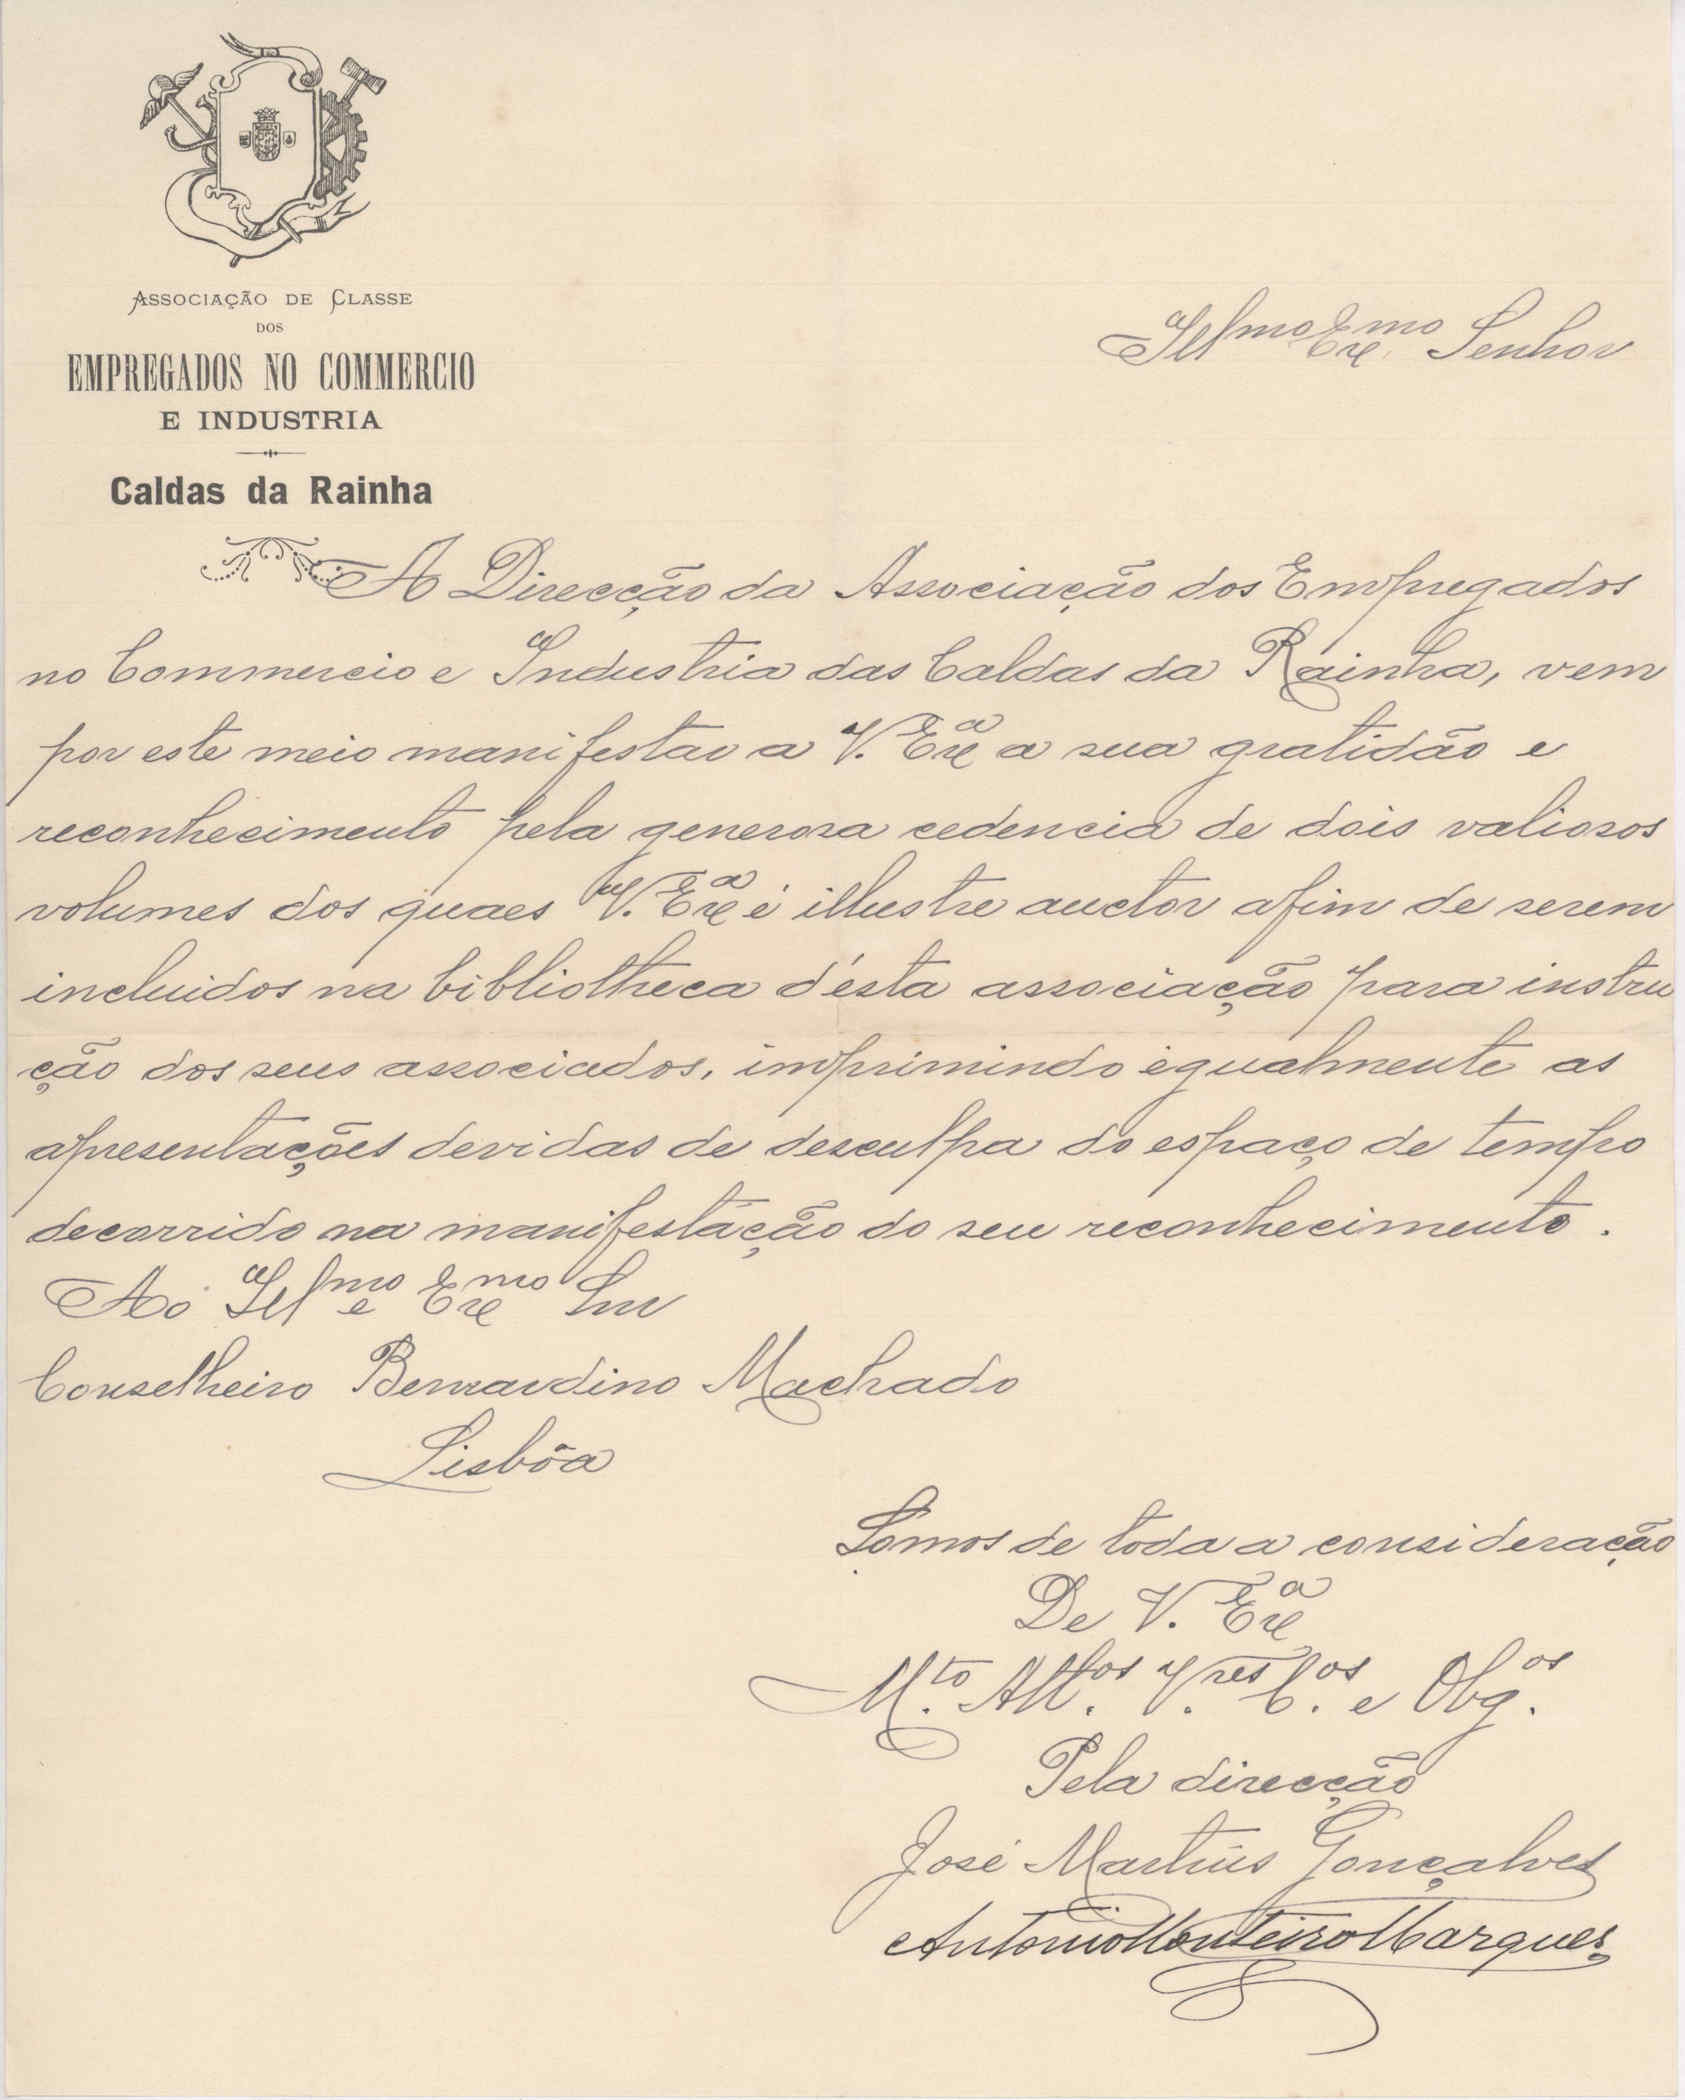 Associação de Classe
dos
EMPREGADOS NO COMMERCIO
E INDUSTRIA
Caldas da Rainha
Illmo Exmo Senhor
A Direcção da Associação dos Empregados
no Commercio e Industria das Caldas da Rainha, vem
por este meio manifestar a V. Exa a sua gratidão e
reconhecimento pela generosa cedencia de dois valiosos
volumes dos quaes V. Exa é illustre auctor afim de serem
incluidos na bibliotheca d'ésta associação para instru
ção dos seus associados, imprimindo egualmente as
apresentações devidas de desculpa do espaço de tempo
decorrido na manifestação do seu reconhecimento.
Ao Illmo e Exmo Snr
Conselheiro Bernardino Machado
Lisbôa
Somos de toda a consideração
De V. Exa
M.to Att.os V.res C.os e Obg.os
Pela direcção
José Martins Gonçalves
Antonio Monteiro Marques